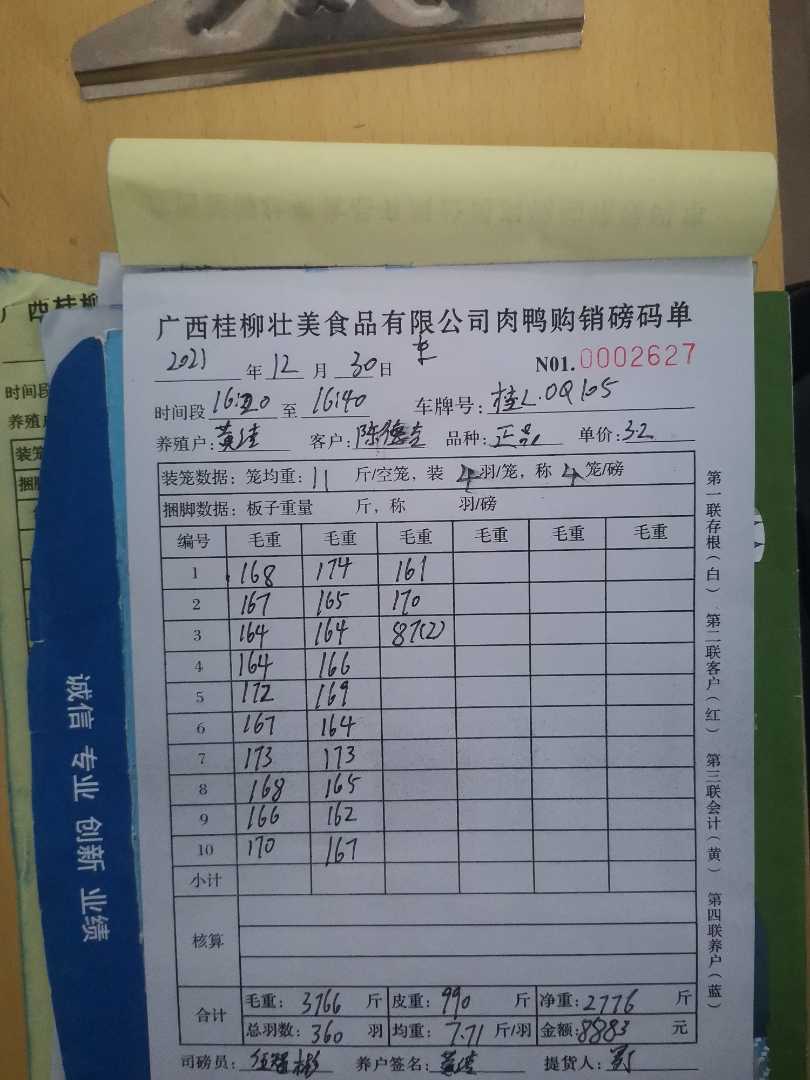 广西桂柳壮美食品有限公司肉鸭购销磅码单
2021 年 12 月 30 日
N01. 0002627
时间段 16:20 至 16:40 车牌号: 桂L.0Q105
养殖户: 黄 客户: 陈德 品种: 正品 单价: 3.2
装笼数据: 笼均重: 11 斤/空笼, 装 4 羽/笼, 称 4 笼/磅
捆脚数据: 板子重量 斤, 称 羽/磅
编号 毛重 毛重 毛重 毛重 毛重 毛重
1 168 174 161
2 167 165 170
3 164 164 87(2)
4 164 166
5 172 169
6 167 164
7 173 173
8 168 165
9 166 162
10 170 167
小计
核算
合计 毛重: 3766 斤 皮重: 990 斤 净重: 2776 斤
总羽数: 360 羽 均重: 7.71 斤/羽 金额: 8883 元
司磅员: 养户签名: 黄 提货人:
第一联存根(白) 第二联客户(红) 第三联会计(黄) 第四联养户(蓝)
广西桂柳
时间段
养殖户
装笼
捆脚
诚信 专业 创新 业绩